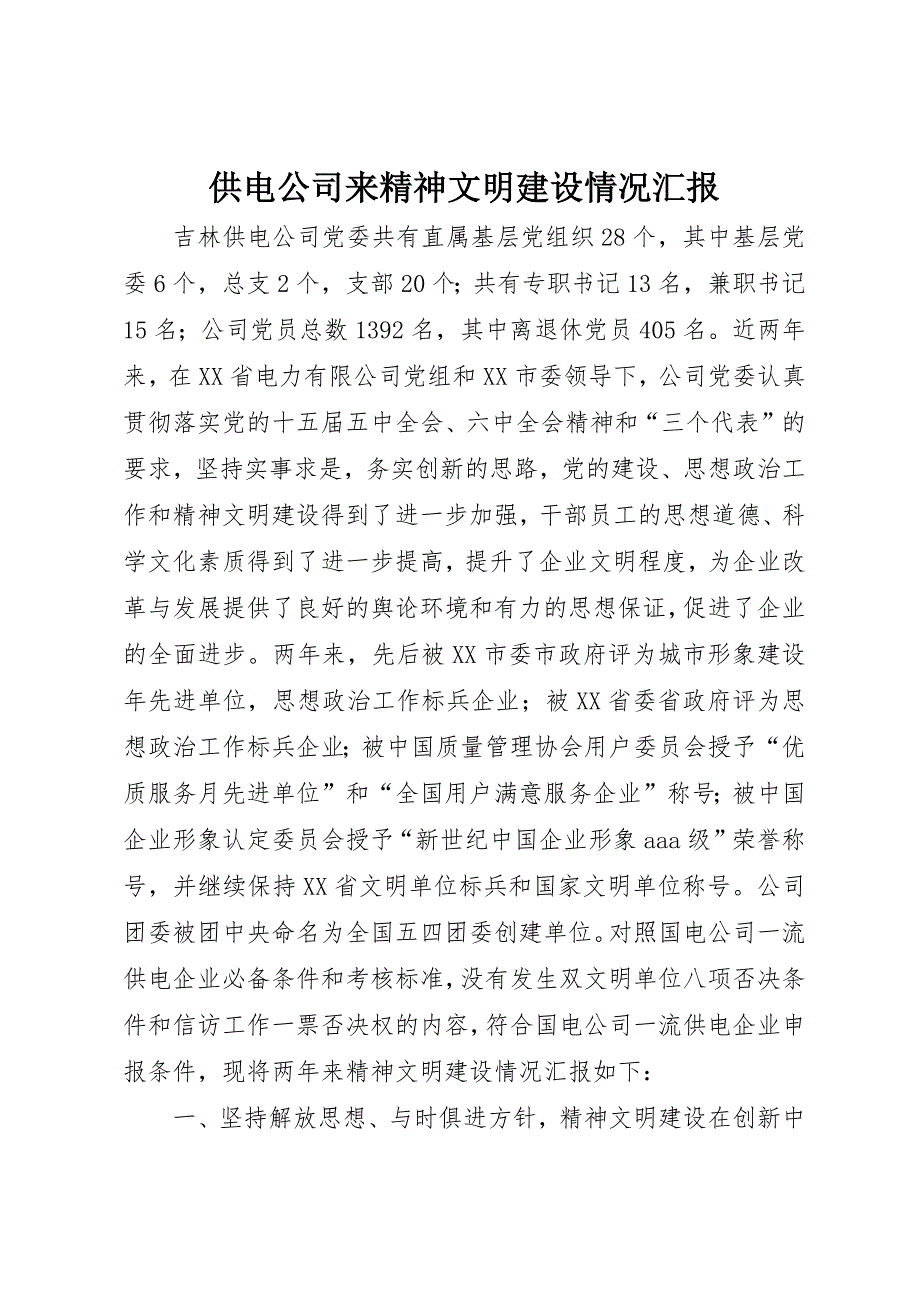 供电公司来精神文明建设情况汇报
吉林供电公司党委共有直属基层党组织28个，其中基层党
委6个，总支2个，支部20个；共有专职书记13名，兼职书记
15名；公司党员总数1392名，其中离退休党员405名。近两年
来，在XX省电力有限公司党组和XX市委领导下，公司党委认真
贯彻落实党的十五届五中全会、六中全会精神和“三个代表”的
要求，坚持实事求是，务实创新的思路，党的建设、思想政治工
作和精神文明建设得到了进一步加强，干部员工的思想道德、科
学文化素质得到了进一步提高，提升了企业文明程度，为企业改
革与发展提供了良好的舆论环境和有力的思想保证，促进了企业
的全面进步。两年来，先后被XX市委市政府评为城市形象建设
年先进单位，思想政治工作标兵企业；被XX省委省政府评为思
想政治工作标兵企业；被中国质量管理协会用户委员会授予“优
质服务月先进单位”和“全国用户满意服务企业”称号；被中国
企业形象认定委员会授予“新世纪中国企业形象aaa级”荣誉称
号，并继续保持XX省文明单位标兵和国家文明单位称号。公司
团委被团中央命名为全国五四团委创建单位。对照国电公司一流
供电企业必备条件和考核标准，没有发生双文明单位八项否决条
件和信访工作一票否决权的内容，符合国电公司一流供电企业申
报条件，现将两年来精神文明建设情况汇报如下：
一、坚持解放思想、与时俱进方针，精神文明建设在创新中